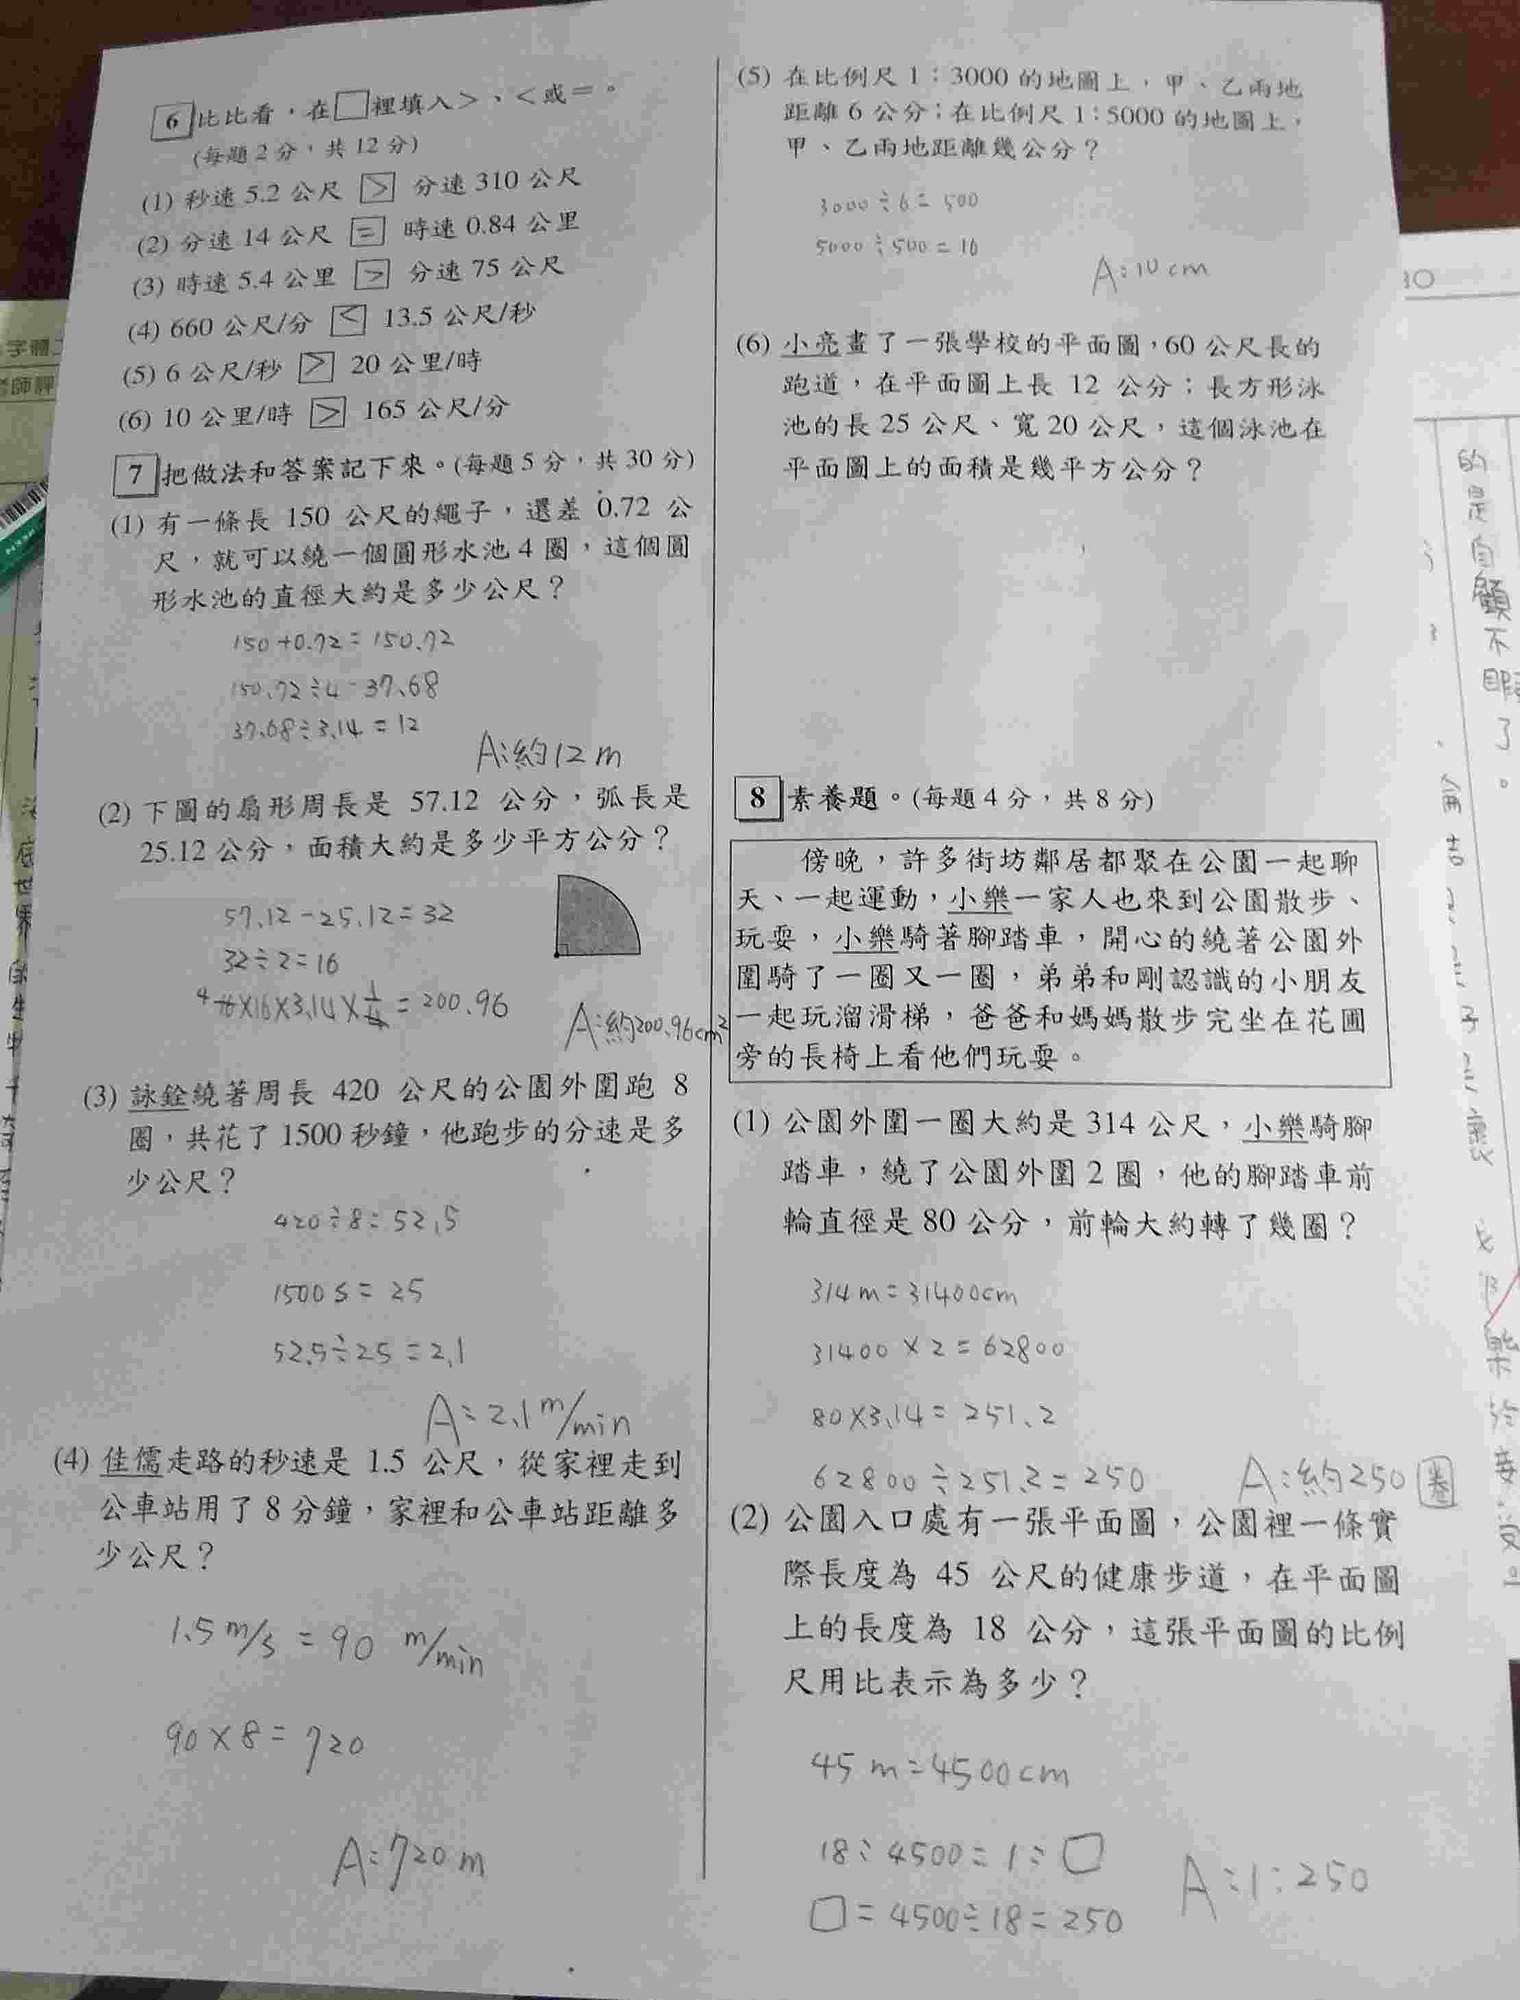 6 比比看，在□裡填入＞、＜或＝。
(每題2分，共12分)
(1) 秒速 5.2 公尺 > 分速 310 公尺
(2) 分速 14 公尺 = 時速 0.84 公里
(3) 時速 5.4 公里 > 分速 75 公尺
(4) 660 公尺/分 < 13.5 公尺/秒
(5) 6 公尺/秒 > 20 公里/時
(6) 10 公里/時 > 165 公尺/分
7 把做法和答案記下來。(每題5分，共30分)
(1) 有一條長 150 公尺的繩子，還差 0.72 公
尺，就可以繞一個圓形水池 4 圈，這個圓
形水池的直徑大約是多少公尺？
150+0.72=150.72
150.72÷4=37.68
37.68÷3.14=12
A:約12m
(2) 下圖的扇形周長是 57.12 公分，弧長是
25.12 公分，面積大約是多少平方公分？
57.12-25.12=32
32÷2=16
4 16×16×3.14×1/4=200.96
A:約200.96cm²
(3) 詠銓繞著周長 420 公尺的公園外圍跑 8
圈，共花了 1500 秒鐘，他跑步的分速是多
少公尺？
420÷8=52.5
1500s=25
52.5÷25=2.1
A:2.1m/min
(4) 佳儒走路的秒速是 1.5 公尺，從家裡走到
公車站用了 8 分鐘，家裡和公車站距離多
少公尺？
1.5m/s=90 m/min
90×8=720
A:720m
(5) 在比例尺 1：3000 的地圖上，甲、乙兩地
距離 6 公分；在比例尺 1：5000 的地圖上，
甲、乙兩地距離幾公分？
3000÷6=500
5000÷500=10
A:10cm
(6) 小亮畫了一張學校的平面圖，60 公尺長的
跑道，在平面圖上長 12 公分；長方形泳
池的長 25 公尺、寬 20 公尺，這個泳池在
平面圖上的面積是幾平方公分？
8 素養題。(每題4分，共8分)
傍晚，許多街坊鄰居都聚在公園一起聊
天、一起運動，小樂一家人也來到公園散步、
玩耍，小樂騎著腳踏車，開心的繞著公園外
圍騎了一圈又一圈，弟弟和剛認識的小朋友
一起玩溜滑梯，爸爸和媽媽散步完坐在花圃
旁的長椅上看他們玩耍。
(1) 公園外圍一圈大約是 314 公尺，小樂騎腳
踏車，繞了公園外圍 2 圈，他的腳踏車前
輪直徑是 80 公分，前輪大約轉了幾圈？
314m=31400cm
31400×2=62800
80×3.14=251.2
62800÷251.2=250
A:約250圈
(2) 公園入口處有一張平面圖，公園裡一條實
際長度為 45 公尺的健康步道，在平面圖
上的長度為 18 公分，這張平面圖的比例
尺用比表示為多少？
45m=4500cm
18:4500=1:□
□=4500÷18=250
A:1:250
的是自顧不暇了。